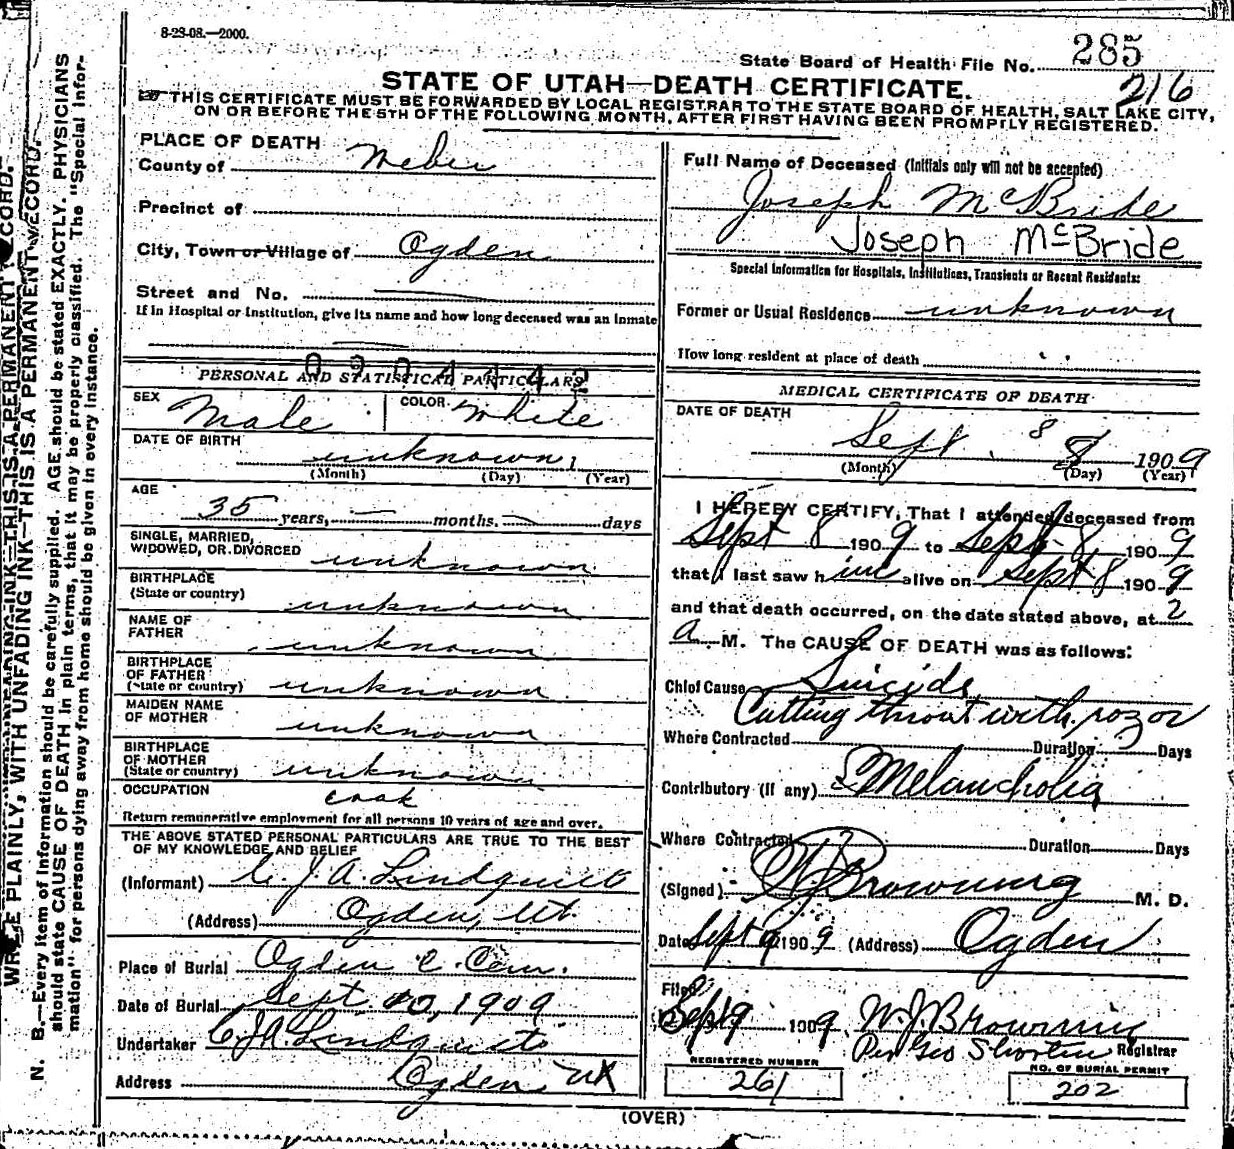 8-23-08.—2000.
State Board of Health File No. 285
216
STATE OF UTAH—DEATH CERTIFICATE.
THIS CERTIFICATE MUST BE FORWARDED BY LOCAL REGISTRAR TO THE STATE BOARD OF HEALTH, SALT LAKE CITY,
ON OR BEFORE THE 5TH OF THE FOLLOWING MONTH, AFTER FIRST HAVING BEEN PROMPTLY REGISTERED.
WRITE PLAINLY, WITH UNFADING INK—THIS IS A PERMANENT RECORD.
N. B.—Every item of information should be carefully supplied. AGE should be stated EXACTLY. PHYSICIANS
should state CAUSE OF DEATH in plain terms, that it may be properly classified. The "Special Infor-
mation" for persons dying away from home should be given in every instance.
PLACE OF DEATH
County of Weber
Precinct of
City, Town or Village of Ogden
Street and No.
If in Hospital or Institution, give its name and how long deceased was an inmate
PERSONAL AND STATISTICAL PARTICULARS
SEX Male COLOR White
DATE OF BIRTH
unknown
(Month) (Day) (Year)
AGE
35 years, — months. — days
SINGLE, MARRIED,
WIDOWED, OR DIVORCED unknown
BIRTHPLACE
(State or country) unknown
NAME OF
FATHER unknown
BIRTHPLACE
OF FATHER
(State or country) unknown
MAIDEN NAME
OF MOTHER unknown
BIRTHPLACE
OF MOTHER
(State or country) unknown
OCCUPATION cook
Return remunerative employment for all persons 10 years of age and over.
THE ABOVE STATED PERSONAL PARTICULARS ARE TRUE TO THE BEST
OF MY KNOWLEDGE AND BELIEF
(Informant) C. J. A. Lindquist
(Address) Ogden, Ut.
Place of Burial Ogden C. Cem.
Date of Burial Sept. 10, 1909
Undertaker C. J. A. Lindquist
Address Ogden Ut
Full Name of Deceased (Initials only will not be accepted)
Joseph McBride
Joseph McBride
Special Information for Hospitals, Institutions, Transients or Recent Residents:
Former or Usual Residence unknown
How long resident at place of death
MEDICAL CERTIFICATE OF DEATH
DATE OF DEATH
Sept. 8 8 1909
(Month) (Day) (Year)
I HEREBY CERTIFY, That I attended deceased from
Sept 8 1909 to Sept 8, 1909
that I last saw him alive on Sept 8 1909
and that death occurred, on the date stated above, at 2
a M. The CAUSE OF DEATH was as follows:
Chief Cause Suicide
Cutting throat with razor
Where Contracted Duration Days
Contributory (if any) Melancholia
Where Contracted ? Duration Days
(Signed) W J Browning M. D.
Date Sept 9 1909 (Address) Ogden
Filed
Sept 9 1909 W. J. Browning
Per Geo Shorten Registrar
REGISTERED NUMBER
261
NO. OF BURIAL PERMIT
202
(OVER)